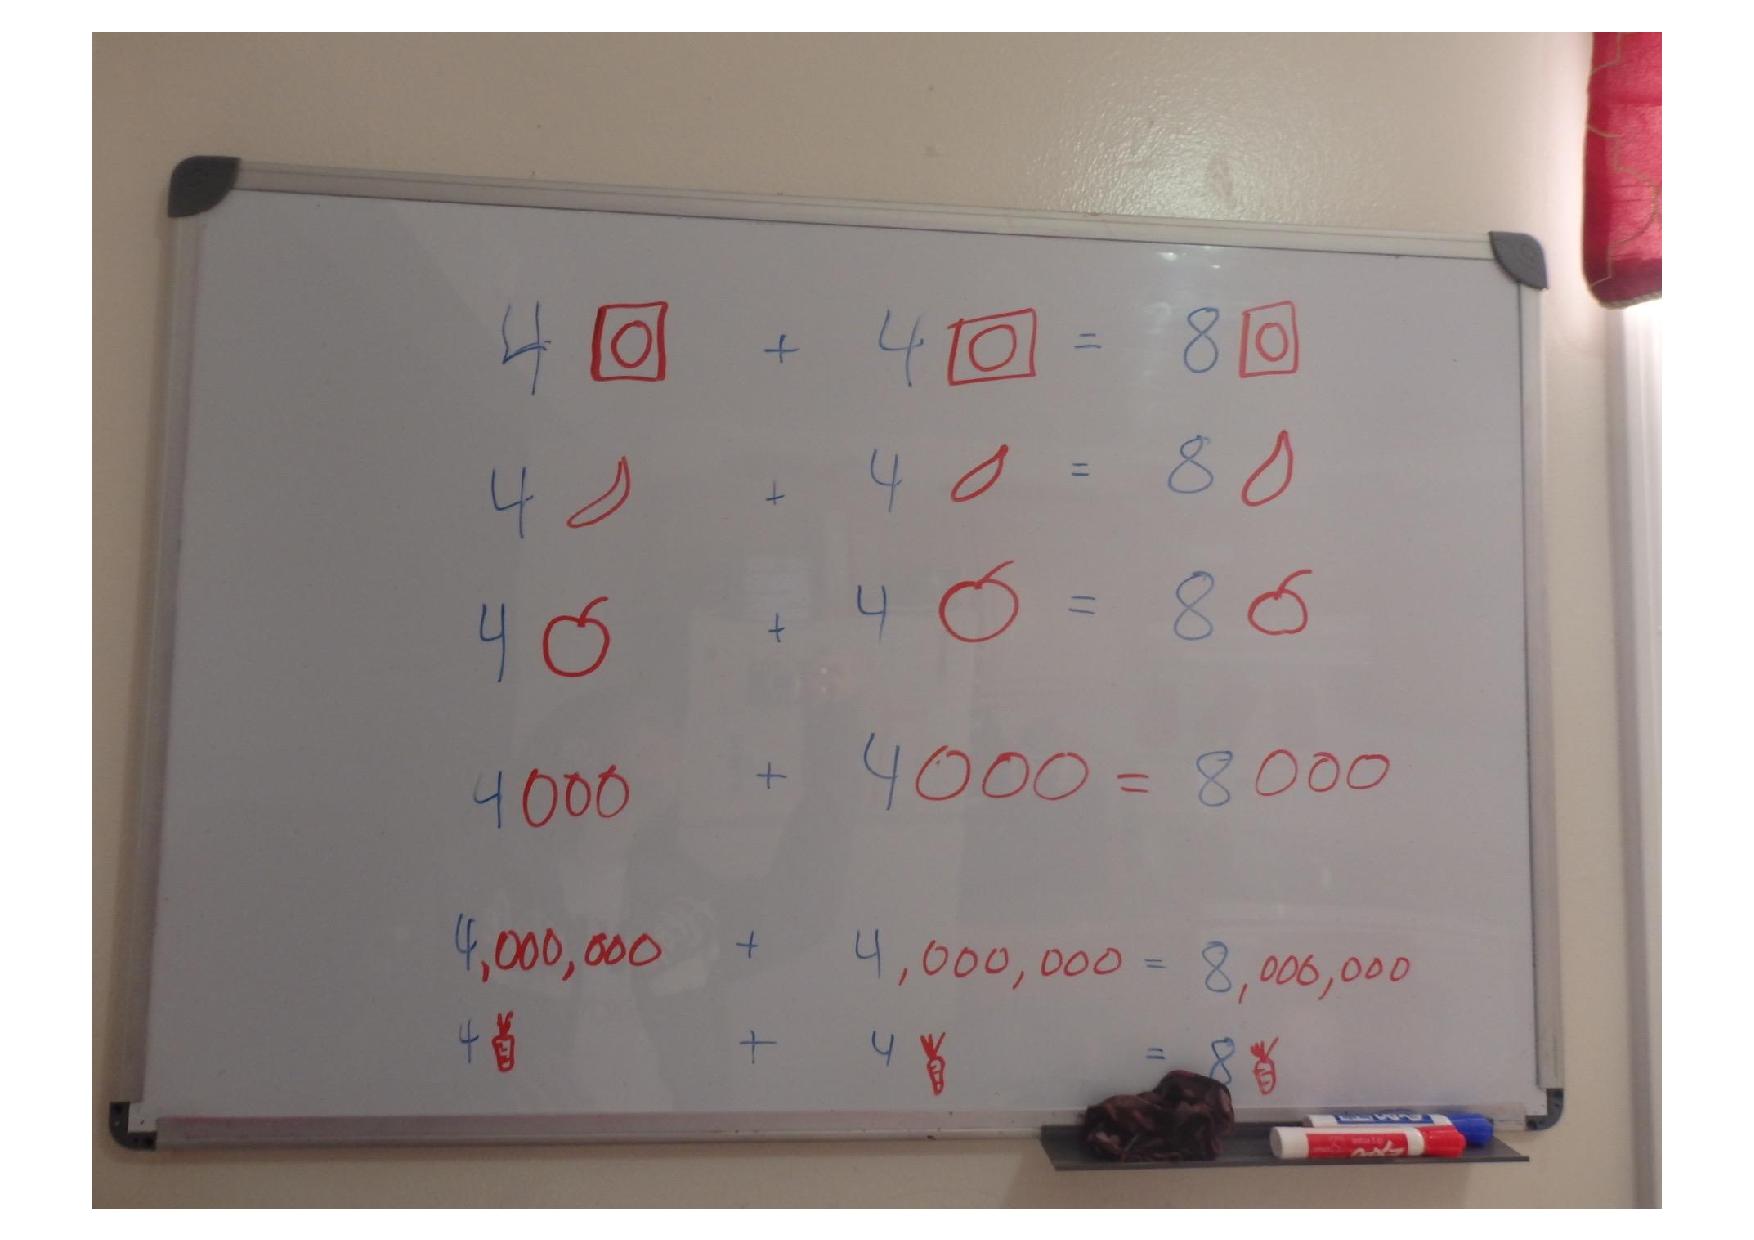 4 + 4 = 8
4 + 4 = 8
4 + 4 = 8
4000 + 4000 = 8000
4,000,000 + 4,000,000 = 8,000,000
4 + 4 = 8
EXPO